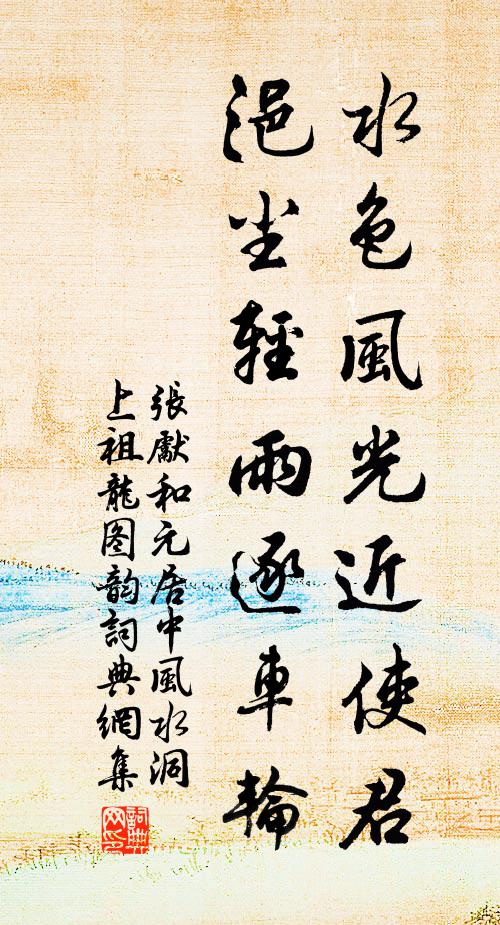 水色風光近使君
浥尘輕雨逐車輪
張獻和元居中風水洞
上祖龍图韵詞典網集
詞典网印